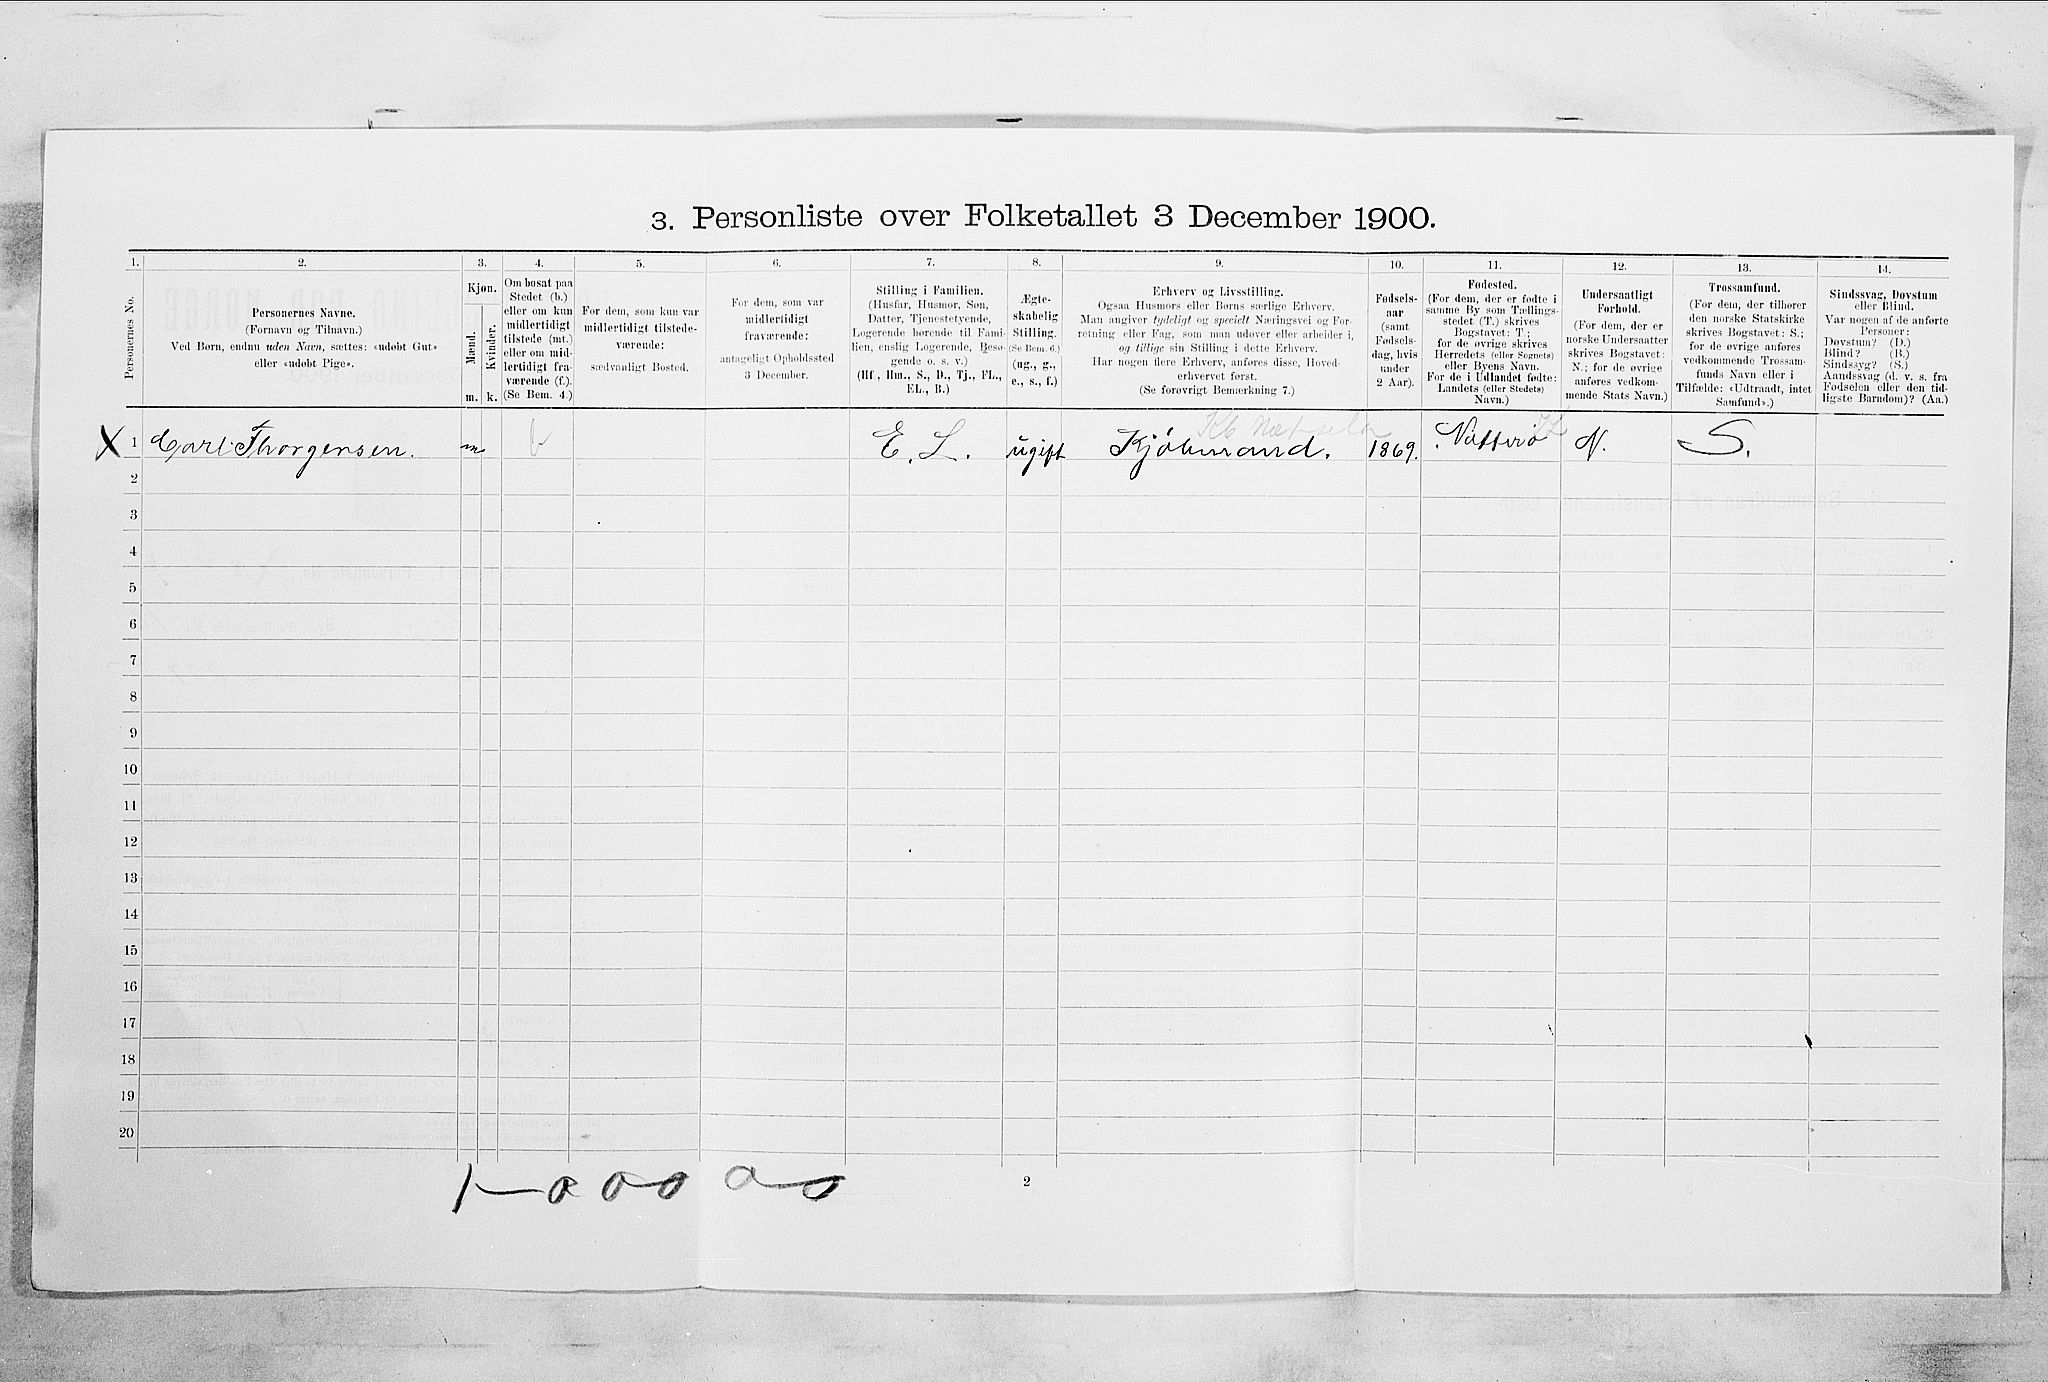 3. Personliste over Folketallet 3 December 1900.
1. 2. 3. 4. 5. 6. 7. 8. 9. 10. 11. 12. 13. 14.
Personernes No.
Personernes Navne.
(Fornavn og Tilnavn.)
Ved Børn, endnu uden Navn, sættes: «udøbt Gut»
eller «udøbt Pige».
Kjøn.
Mænd.
Kvinder.
m. k.
Om bosat paa
Stedet (b.)
eller om kun
midlertidigt
tilstede (mt.)
eller om mid-
lertidigt fra-
værende (f.).
(Se Bem. 4.)
For dem, som kun var
midlertidigt tilstede-
værende:
sædvanligt Bosted.
For dem, som var
midlertidigt
fraværende:
antageligt Opholdssted
3 December.
Stilling i Familien.
(Husfar, Husmor, Søn,
Datter, Tjenestetyende,
Logerende hørende til Fami-
lien, enslig Logerende, Besø-
gende o. s. v.)
(Hf., Hm., S., D., Tj., FL.,
EL., B.)
Ægte-
skabelig
Stilling.
(Se Bem. 6.)
(ug., g.,
e., s., f.)
Erhverv og Livsstilling.
Ogsaa Husmors eller Børns særlige Erhverv.
Man angiver tydeligt og specielt Næringsvei og For-
retning eller Fag, som man udøver eller arbeider i,
og tillige sin Stilling i dette Erhverv.
Har nogen flere Erhverv, anføres disse, Hoved-
erhvervet først.
(Se forøvrigt Bemærkning 7.)
Fødsels-
aar
(samt
Fødsels-
dag, hvis
under
2 Aar).
Fødested.
(For dem, der er fødte i
samme By som Tællings-
stedet (T.) skrives
Bogstavet: T.;
for de øvrige skrives
Herredets (eller Sognets)
eller Byens Navn.
For de i Udlandet fødte:
Landets (eller Stedets)
Navn.)
Undersaatligt
Forhold.
(For dem, der er
norske Undersaatter
skrives Bogstavet:
N.; for de øvrige
anføres vedkom-
mende Stats Navn.)
Trossamfund.
(For dem, der tilhører
den norske Statskirke
skrives Bogstavet: S.;
for de øvrige anføres
vedkommende Trossam-
funds Navn eller i
Tilfælde: «Udtraadt, intet
Samfund».)
Sindssvag, Døvstum
eller Blind.
Var nogen af de anførte
Personer:
Døvstum? (D.)
Blind? (B.)
Sindssyg? (S.)
Aandssvag (d. v. s. fra
Fødselen eller den tid-
ligste Barndom)? (Aa.)
X 1 Carl Thorgersen. m b E. L. ugift Kjøbmand. 1869. Nøtterø N. S.
2
3
4
5
6
7
8
9
10
11
12
13
14
15
16
17
18
19
20
1 - 0 0 0 0 0
2